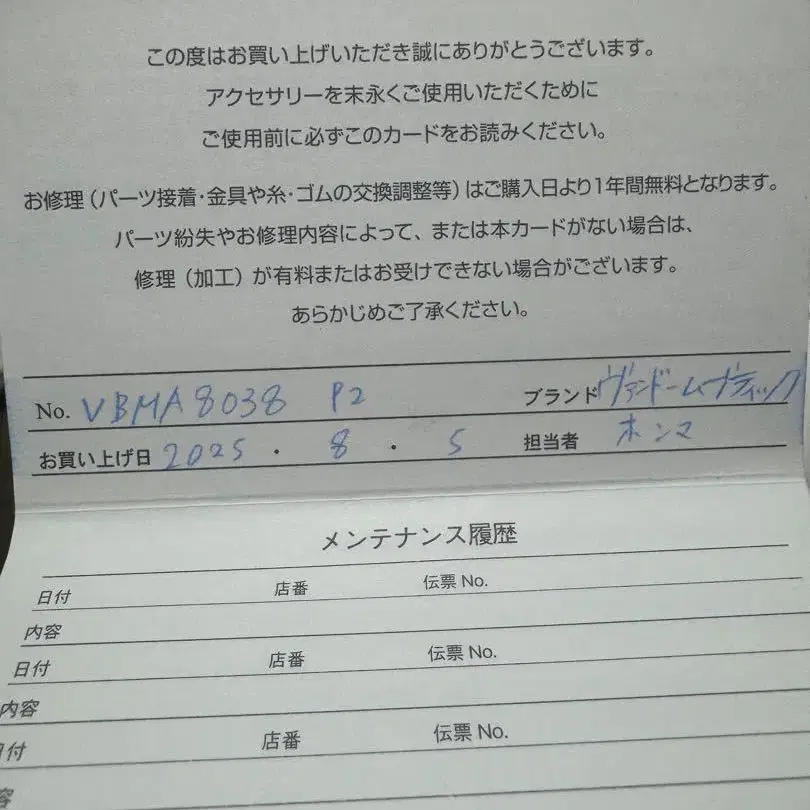 この度はお買い上げいただき誠にありがとうございます。
アクセサリーを末永くご使用いただくために
ご使用前に必ずこのカードをお読みください。
お修理（パーツ接着・金具や糸・ゴムの交換調整等）はご購入日より1年間無料となります。
パーツ紛失やお修理内容によって、または本カードがない場合は、
修理（加工）が有料またはお受けできない場合がございます。
あらかじめご了承ください。
No. VBMA8038 P2 ブランド ヴァンドームブティック
お買い上げ日 2025 . 8 . 5 担当者 ホンマ
メンテナンス履歴
日付 店番 伝票 No.
内容
日付 店番 伝票 No.
内容
日付 店番 伝票 No.
内容